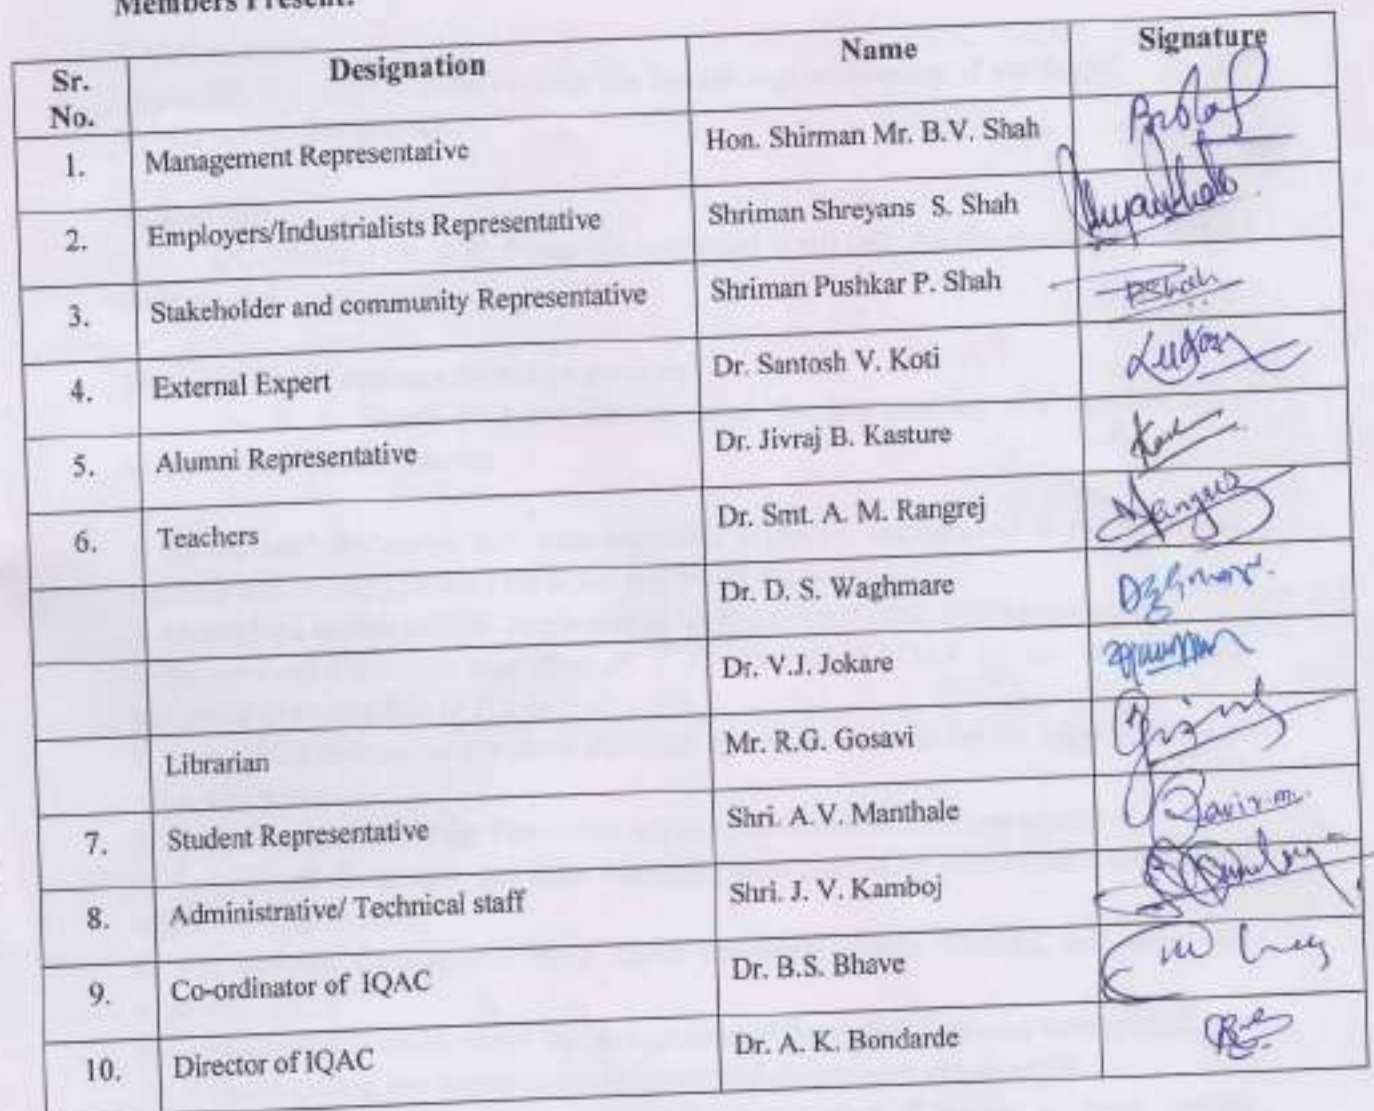 Members Present:
Sr. No. Designation Name Signature
1. Management Representative Hon. Shirman Mr. B.V. Shah
2. Employers/Industrialists Representative Shriman Shreyans S. Shah
3. Stakeholder and community Representative Shriman Pushkar P. Shah PShah
4. External Expert Dr. Santosh V. Koti
5. Alumni Representative Dr. Jivraj B. Kasture
6. Teachers Dr. Smt. A. M. Rangrej
Dr. D. S. Waghmare
Dr. V.J. Jokare
Librarian Mr. R.G. Gosavi
7. Student Representative Shri. A.V. Manthale
8. Administrative/ Technical staff Shri. J. V. Kamboj
9. Co-ordinator of IQAC Dr. B.S. Bhave
10. Director of IQAC Dr. A. K. Bondarde